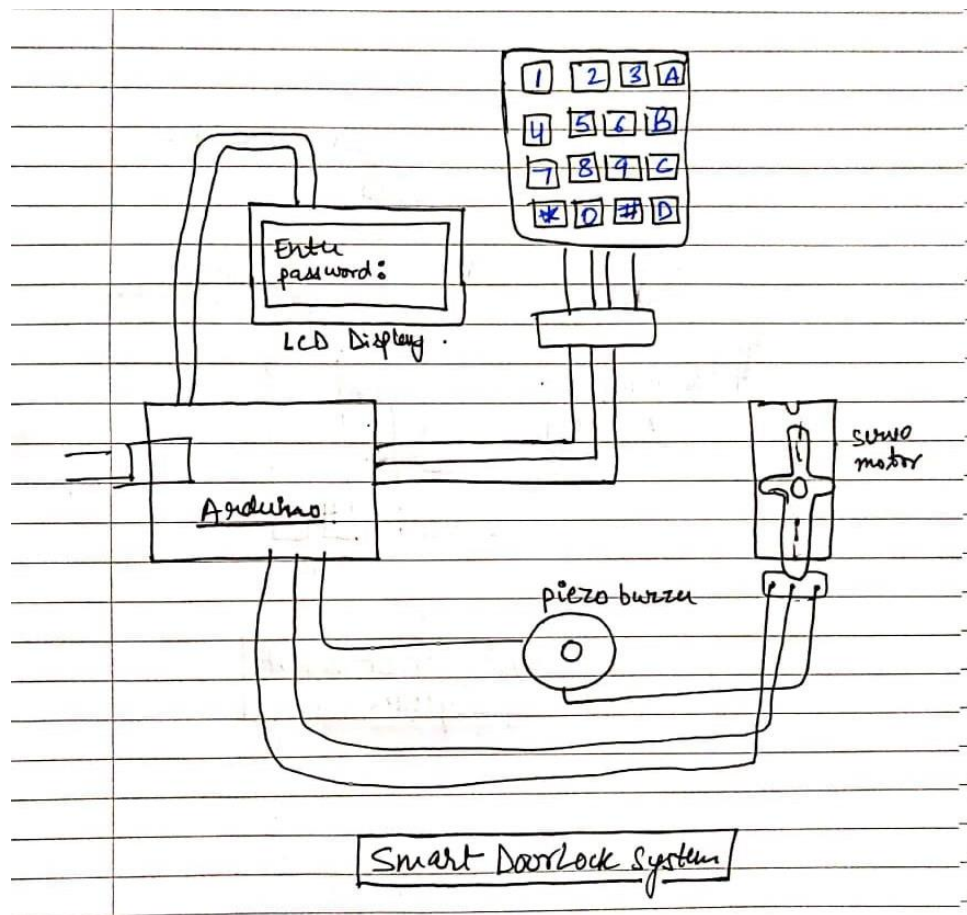 1 2 3 A
4 5 6 B
7 8 9 C
* 0 # D
Enter
password:
LCD Display.
servo
motor
Arduino
piezo buzzer
Smart DoorLock System